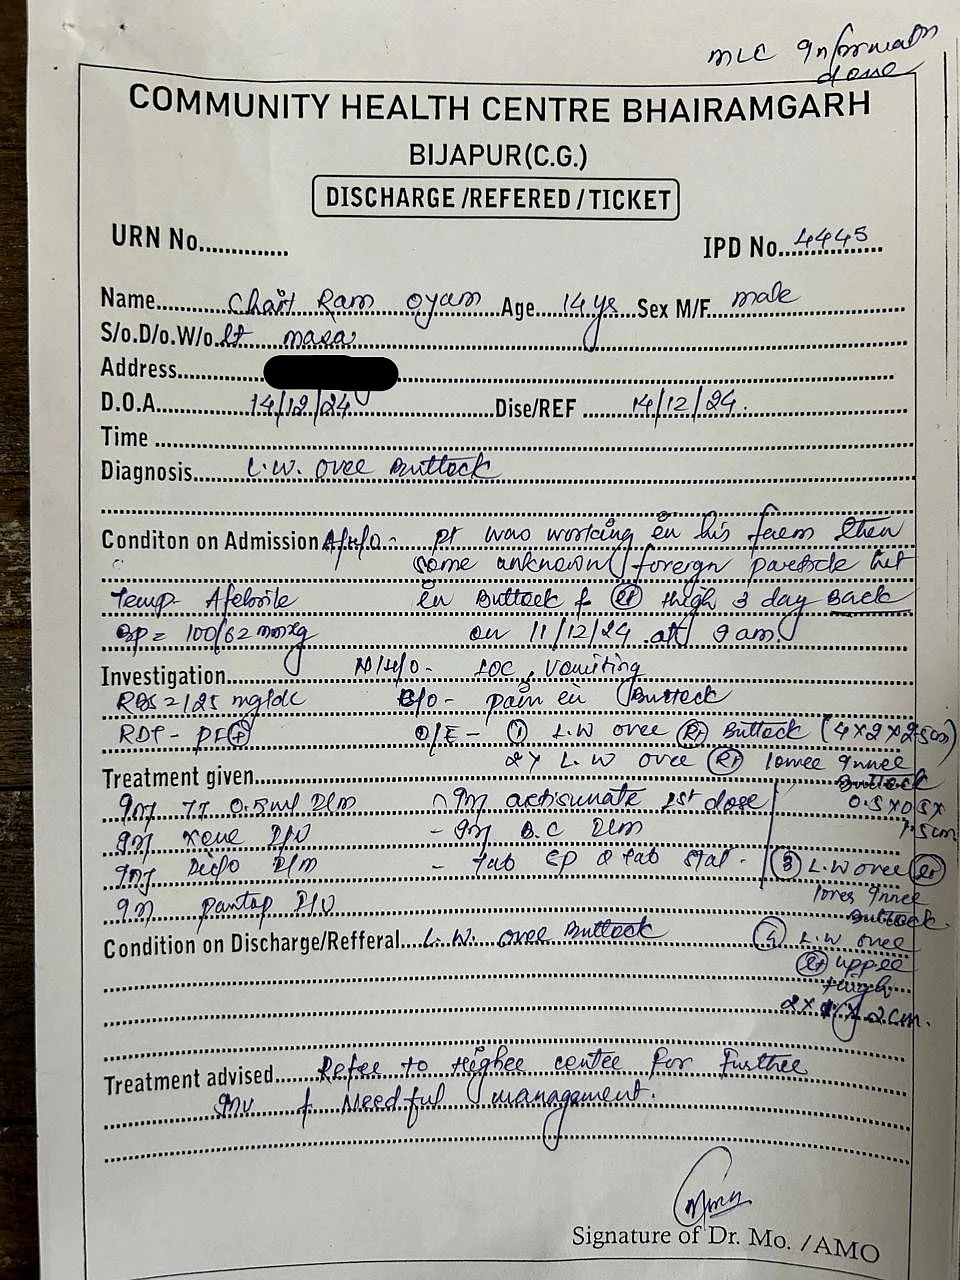 MLC Information
done
COMMUNITY HEALTH CENTRE BHAIRAMGARH
BIJAPUR(C.G.)
DISCHARGE /REFERED / TICKET
URN No.............. IPD No. 4445
Name...... Ram oyam Age....14 ys...Sex M/F. male
S/o.D/o.W/o. Lt masa
Address
D.O.A......14/12/24......Dise/REF ......14/12/24.
Time
Diagnosis...... L.W. over Buttock
Conditon on Admission A/H/O - pt was working in his farm then
some unknown foreign particle hit
Temp- Afebrile in Buttock & thigh 3 day Back
BP = 100/62 mmHg on 11/12/24 at 9 am.
Investigation N/H/O - LOC, Vomiting
RBS = 125 mg/dc C/O - pain in Buttock
RDT - PF(+) O/E - ① L.W over (Rt) Buttock (4×2×2.5cm)
2× L.W over (Rt) lower Inner
Buttock
Treatment given
Inj TT 0.5ml I/m - Inj artisunate 1st dose 0.5×0.5×
1.5cm
Inj I/V - Inj B.C I/m
Inj Diclo I/m - tab stat. ③ L.W over (Lt)
Inner
Inj pantop I/V Buttock.
Condition on Discharge/Refferal....L.W. over Buttock ④ L.W over
(Lt) upper
thigh
2cm.
Treatment advised..... Refer to Higher centre for Further
Inv & Needful management.
Signature of Dr. Mo. /AMO